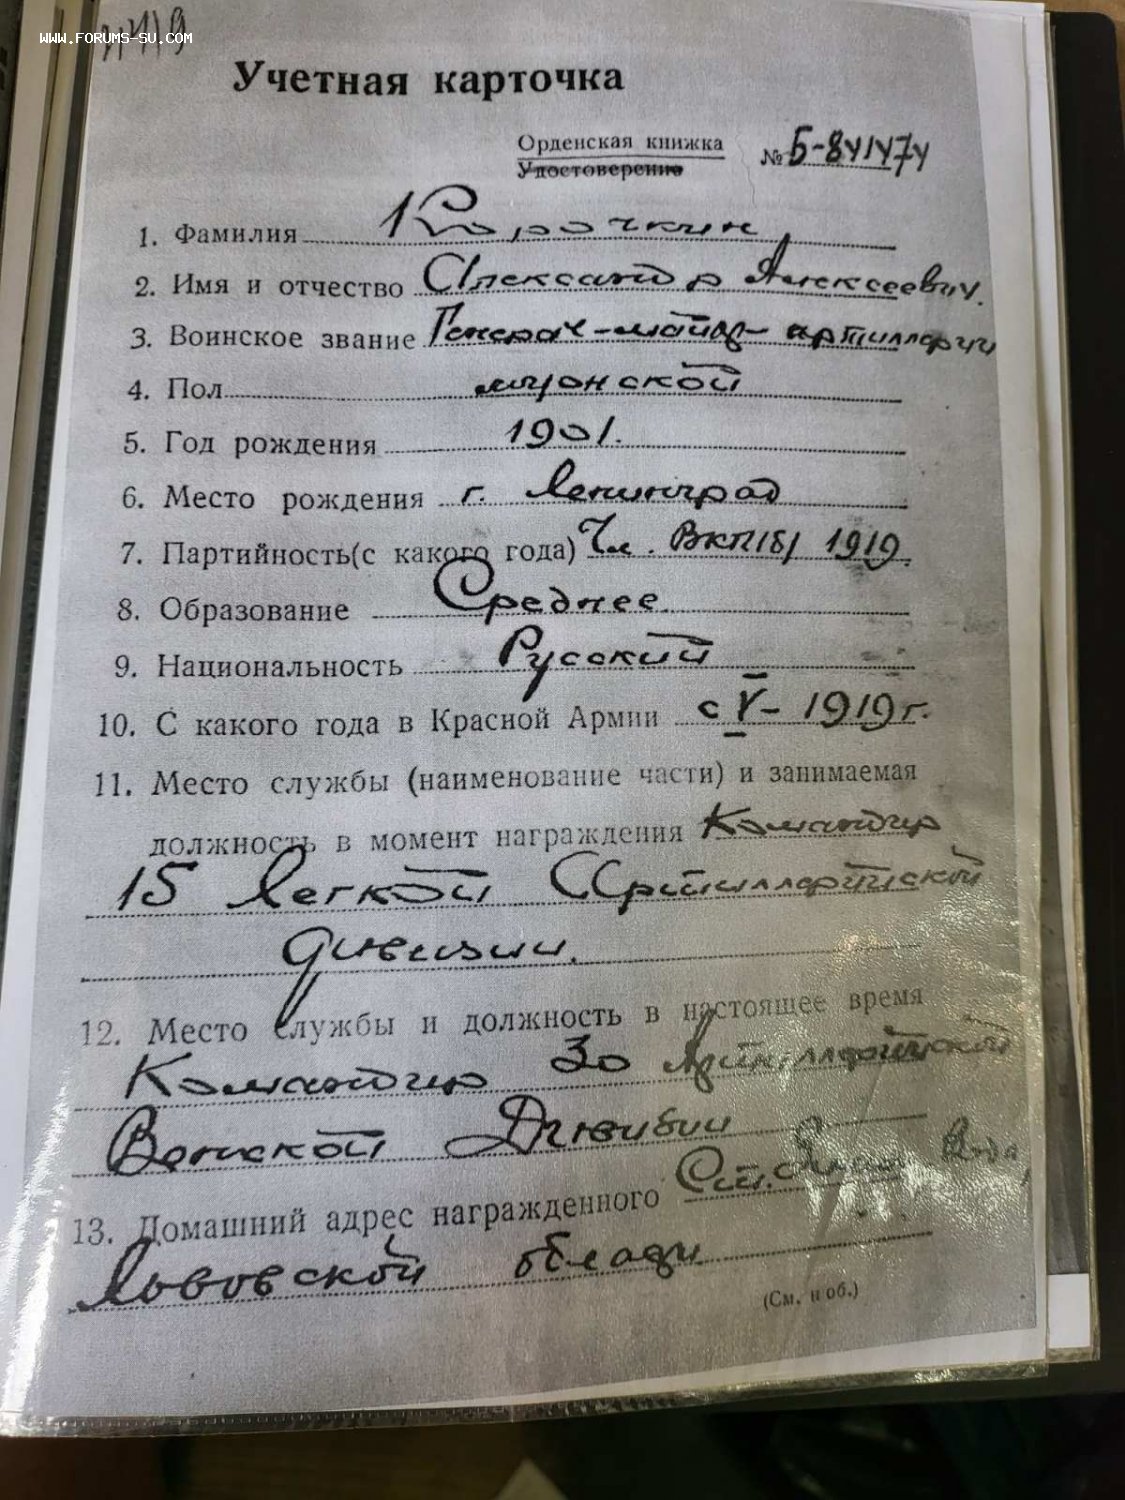 WWW.FORUMS-SU.COM
Учетная карточка
Орденская книжка
Удостоверение
№ Б-841474
1. Фамилия Корочкин
2. Имя и отчество Александр Алексеевич.
3. Воинское звание Генерал-майор артиллерии
4. Пол мужской
5. Год рождения 1901.
6. Место рождения г. Ленинград
7. Партийность(с какого года) Чл. ВКП/б/ 1919.
8. Образование Среднее.
9. Национальность Русский
10. С какого года в Красной Армии с V- 1919 г.
11. Место службы (наименование части) и занимаемая
должность в момент награждения Командир
15 легкой Артиллерийской
дивизии.
12. Место службы и должность в настоящее время
Командир 30 Артиллерийской
Венской Дивизии
13. Домашний адрес награжденного Вода,
Львовской области
(См. н об.)